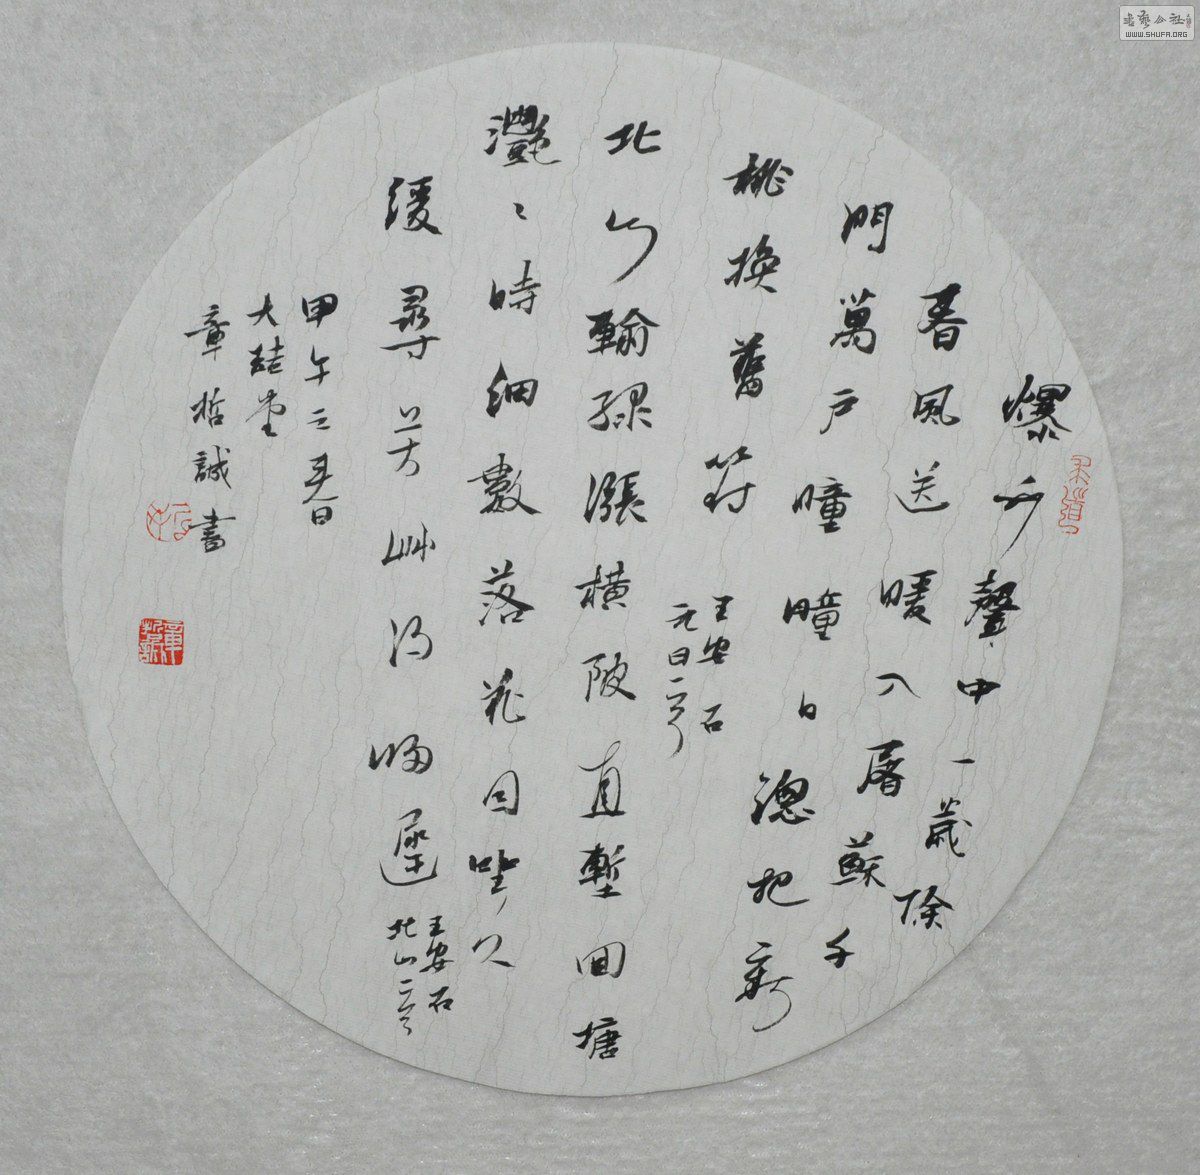 爆竹聲中一歲除
春風送暖入屠蘇千
門萬戶曈曈日總把新
桃換舊符
王安石
元日一首
北山輸綠漲橫陂直塹回塘
灩〻時細數落花因坐久
緩尋芳艸得歸遲
王安石
北山一首
甲午之春
大喆堂
章哲誠書
書藝公社
WWW.SHUFA.ORG